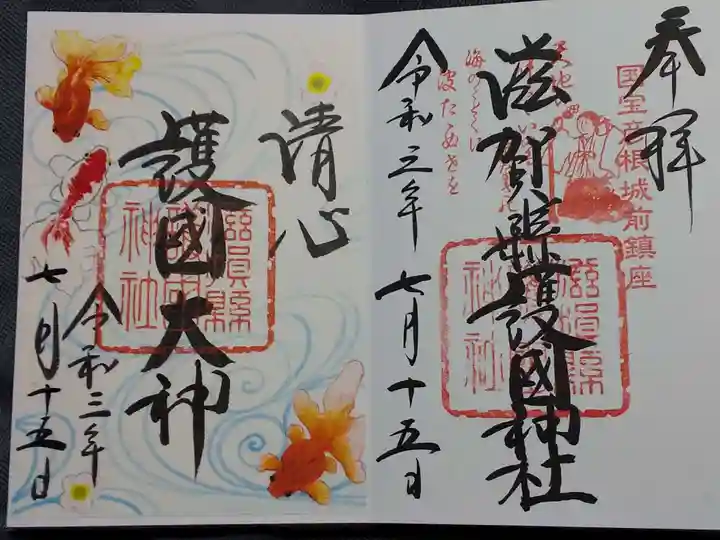 奉拝
国宝彦根城前鎮座
滋賀縣護國神社
令和三年 七月十五日
滋賀縣護國神社
清心
護國大神
滋賀縣護國神社
令和三年
七月十五日